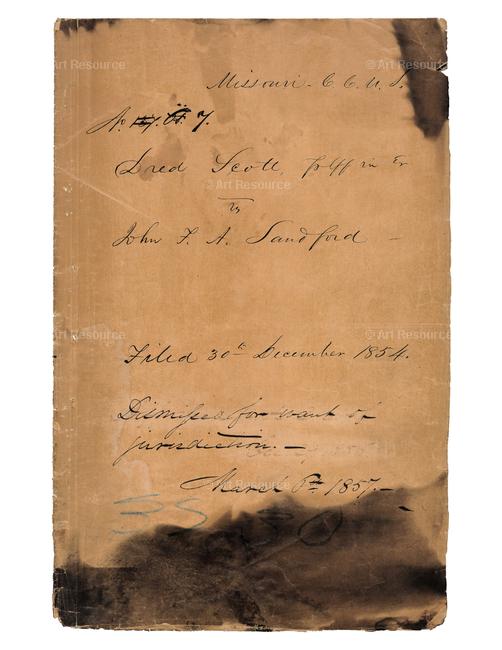 Missouri C. C. U. S.
No. 7.
Dred Scott, Plff in Er
vs
John F. A. Sandford –
Filed 30th December 1854.
Dismissed for want of
jurisdiction. –
March 6th 1857. –
© Art Resource
© Art Resource
© Art Resource
© Art Resource
© Art Resource
© Art Resource